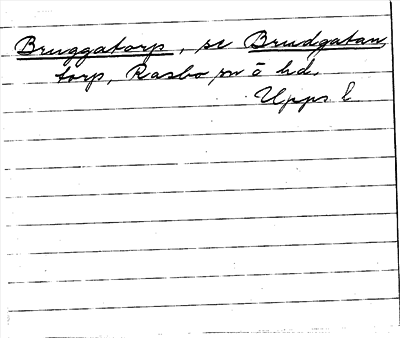 Bruggatorp, se Brudgatan,
torp, Rasbo sn o hd.
Upps l